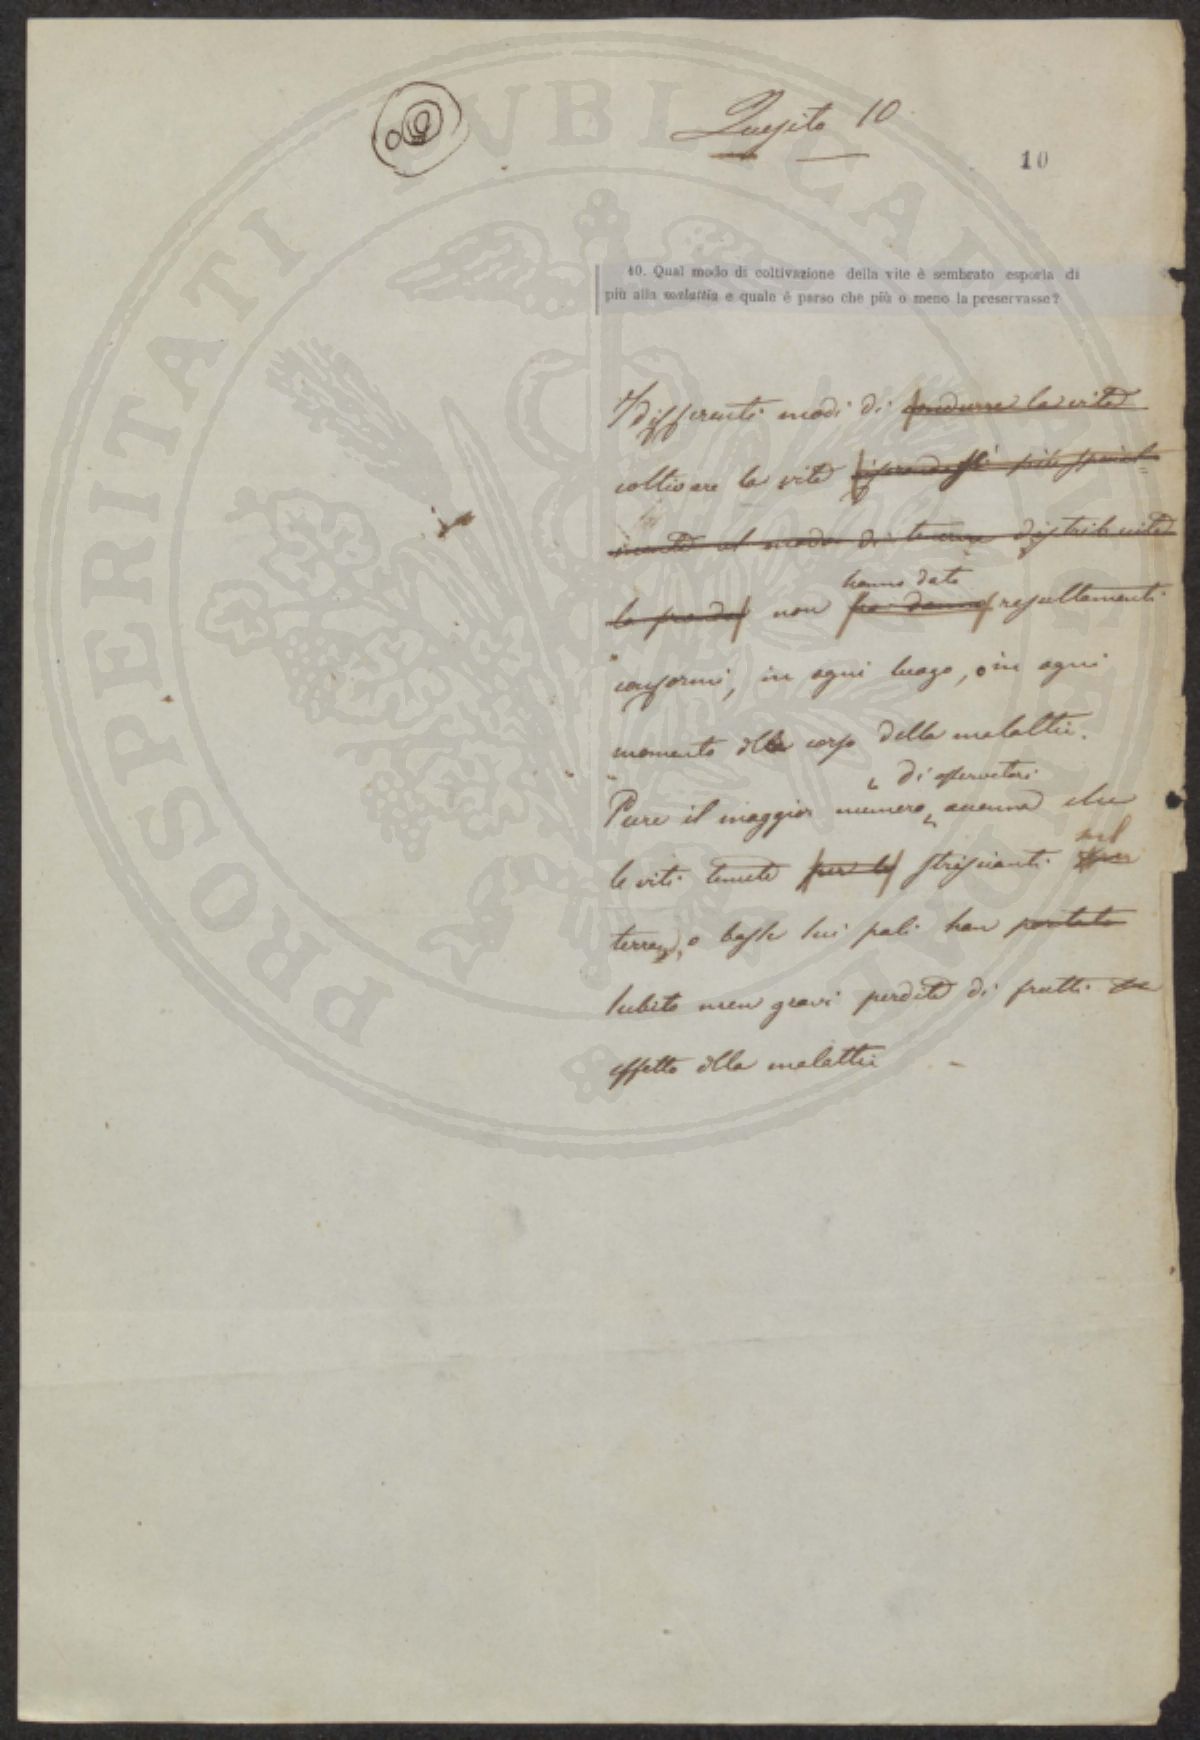 Quesito 10
10
10. Qual modo di coltivazione della vite è sembrato esporla di
più alla malattia e quale è parso che più o meno la preservasse?
I differenti modi di condurre la vite
coltivare la vite
al modo di tenere distribuite
le prode non hanno dato resultamenti
conformi, in ogni luogo, o in ogni
momento della corso della malattia.
Pure il maggior numero di osservatori accenna che
le viti tenute per le striscianti nel
terreno, o basse sui pali han portato
subito men gravi perdite di frutti
effetto della malattia
PROSPERITATI PUBLICAE